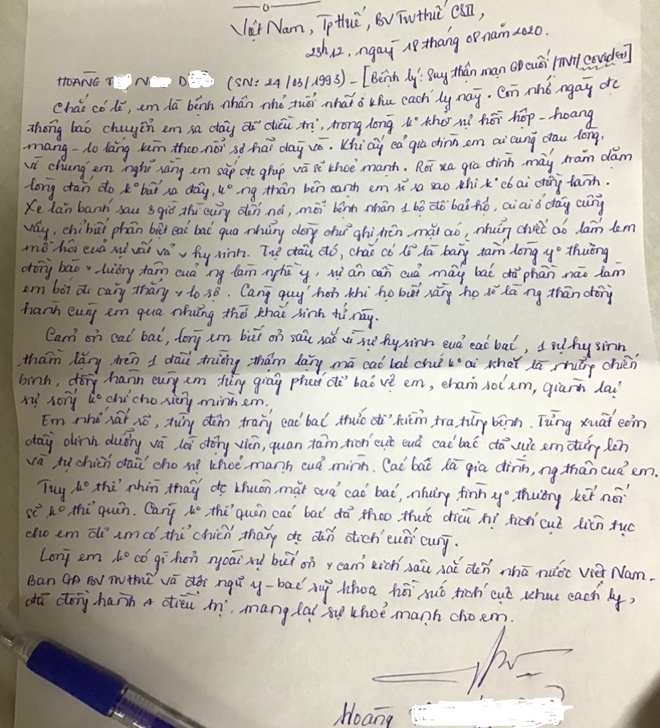 Việt Nam, Tp Huế, BV TW Huế CSII,
23h12, ngày 18 tháng 08 năm 2020.
HOÀNG T N D (SN: 24/03/1993) - [Bệnh lý: Suy thận mạn GĐ cuối /TNT/ covid19]
Chắc có lẽ, em là bệnh nhân nhỏ tuổi nhất ở khu cách ly này. Còn nhớ ngày đc
thông báo chuyển em ra đây để điều trị, trong lòng k° khỏi sự hồi hộp - hoang
mang - lo lắng kèm theo nỗi sợ hãi dày vò. Khi ấy cả gia đình em ai cũng đau lòng,
vì chúng em nghĩ rằng em sắp đc ghép và sẽ khoẻ mạnh. Rồi xa gia đình mấy trăm dặm
long đan đo k° biết ra đây, k° ng thân bên cạnh em sẽ ra sao khi k° có ai đồng hành.
Xe lăn bánh sau 3 giờ thì cũng đến nơi, mỗi bệnh nhân 1 bộ đồ bảo hộ, ai ai ở đây cũng
vậy, chỉ biết phân biệt các bác qua những dòng chữ ghi trên mặt áo, những chiếc áo lấm lem
mồ hôi của sự vất vả + hy sinh. Từ đâu đó, chắc có lẽ là bằng tấm lòng yº thương
đồng bào + lương tâm của ng làm nghề y, sự ân cần của mấy bác đã phần nào làm
em bớt đi căng thẳng + lo sợ. Càng quý hơn khi họ biết rằng họ sẽ là ng thân đồng
hành cùng em qua những thời khắc sinh tử này.
Cảm ơn các bác, lòng em biết ơn sâu sắc vì sự hy sinh của các bác, 1 sự hy sinh
thầm lặng trên 1 đấu trường thầm lặng mà các bác chứ k° ai khác là những chiến
binh, đồng hành cùng em từng giây phút để bảo vệ em, chăm sóc em, giành lại
sự sống k° chỉ cho riêng mình em.
Em nhớ rất rõ, từng đêm trắng các bác thức để kiểm tra từng bệnh. Từng xuất cơm
đầy dinh dưỡng và lời động viên, quan tâm tích cực của các bác đã vực em đứng lên
và tự chiến đấu cho sự khoẻ mạnh của mình. Các bác là gia đình, ng thân của em.
Tuy k° thể nhìn thấy đc khuôn mặt của các bác, nhưng tình yº thương kết nối
sẽ k° thể quên. Càng k° thể quên các bác đã theo thức điều trị tích cực liên tục
cho em để em có thể chiến thắng đc đến đích cuối cùng.
Lòng em k° có gì hơn ngoài sự biết ơn + cảm kích sâu sắc đến nhà nước Việt Nam.
Ban GĐ BV TW Huế và đội ngũ y - bác sỹ khoa hồi sức tích cực khu cách ly,
đã đồng hành + điều trị. mang lại sự khoẻ mạnh cho em.
Hoàng